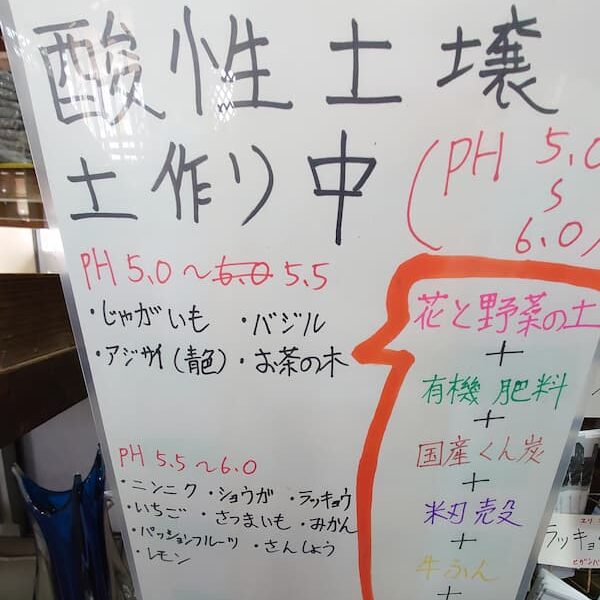 酸性土壌
土作り中
(PH 5.0
〜
6.0)
PH 5.0 〜 6.0 5.5
・じゃがいも ・バジル
・アジサイ(青色) ・お茶の木
PH 5.5 〜 6.0
・ニンニク ・ショウガ ・ラッキョウ
・いちご ・さつまいも ・みかん
・パッションフルーツ ・さんしょう
・レモン
花と野菜の土
+
有機肥料
+
国産くん炭
+
籾殻
+
牛ふん
+
ラッキョ